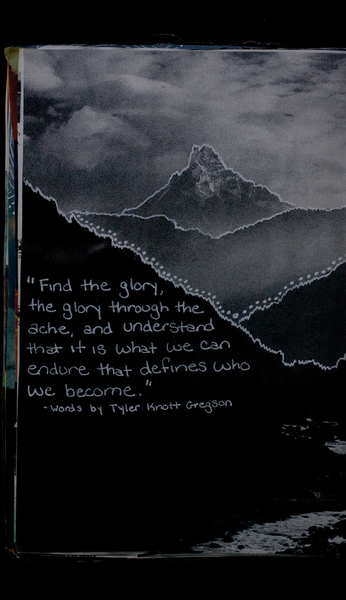 "Find the glory,
the glory through the
ache, and understand
that it is what we can
endure that defines who
we become."
- Words by Tyler Knott Gregson